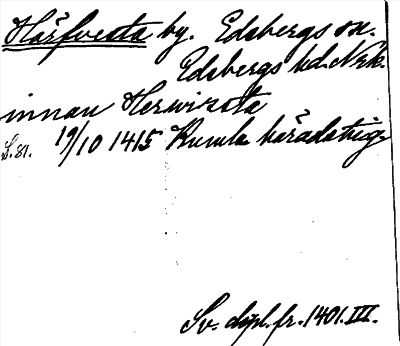 Härfvesta by. Edsbergs sn.
Edsbergs hd. Nrk.
innan Herwirsta
S. 81. 19/10 1415 Kumla häradsting
Sv. dipl. fr. 1401. III.